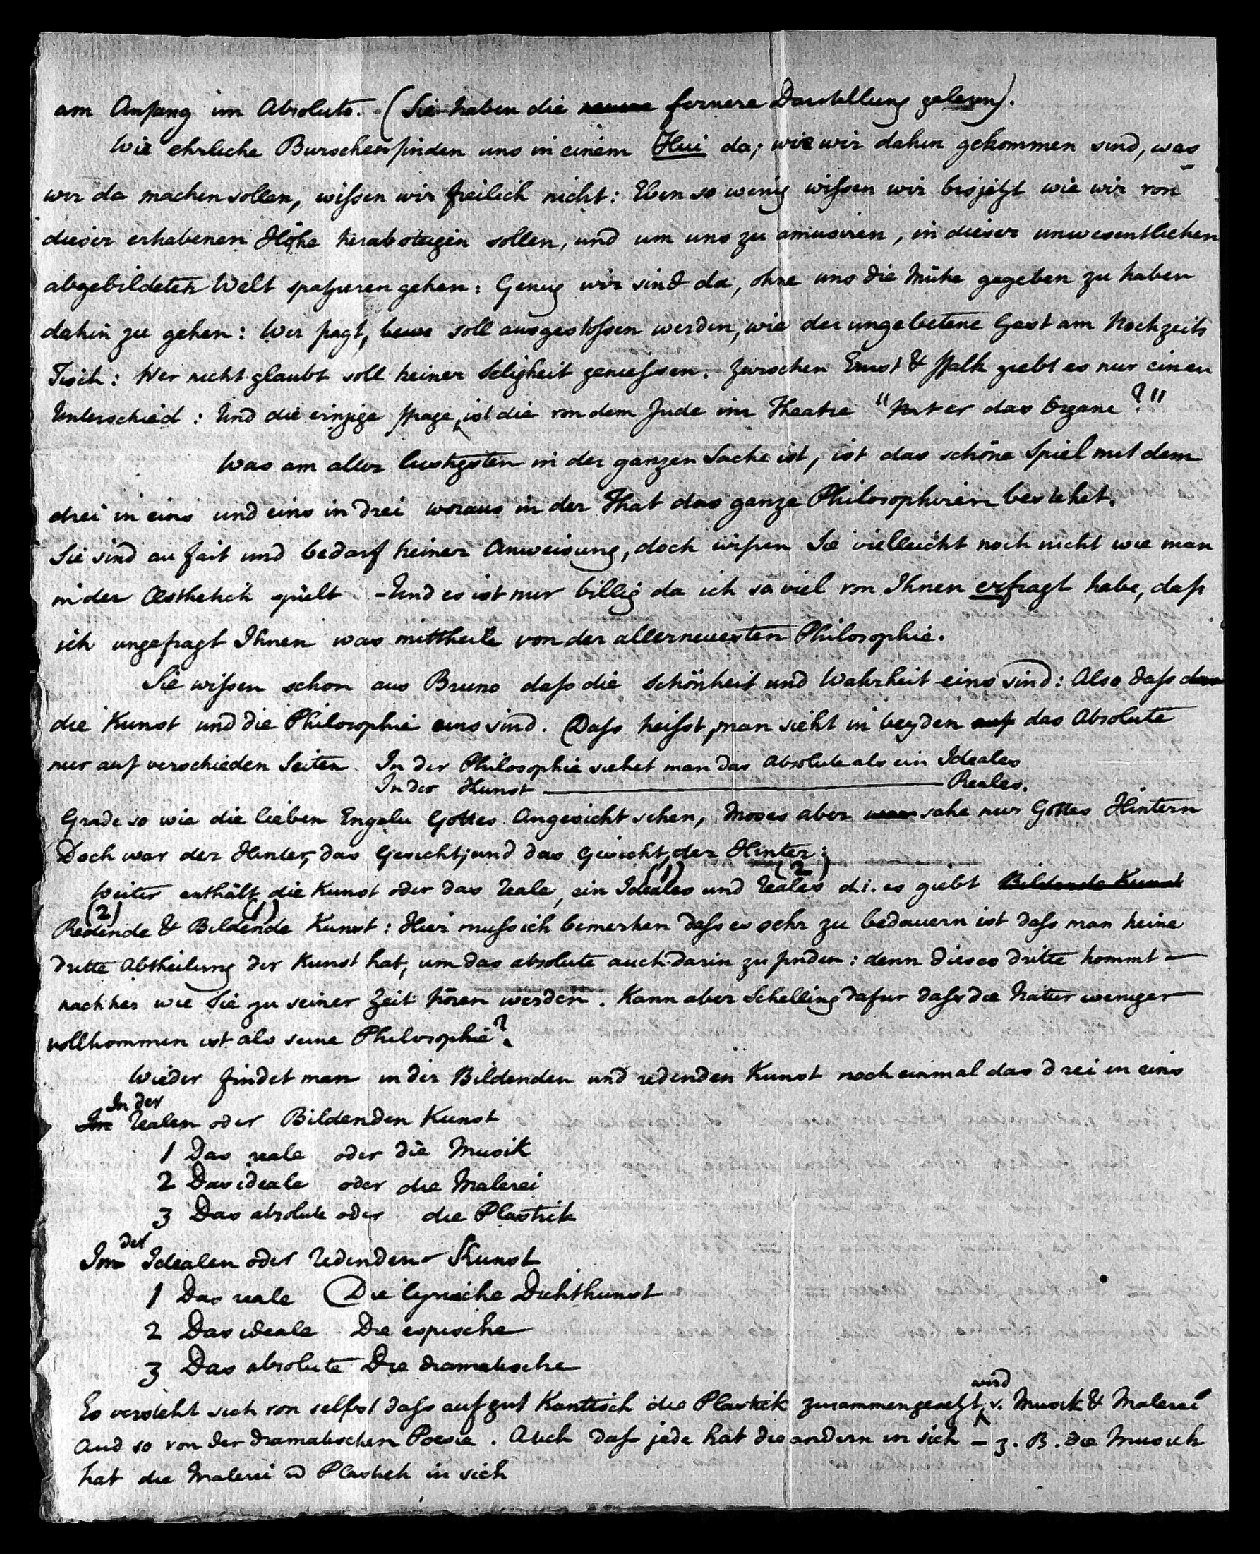 am Anfang im Absolute. (Sie haben die neuere fernere Darstellung gelesen).
Wie ehrliche Burschen finden uns in einem Hui da; wie wir dahin gekommen sind, was
wir da machen sollen, wissen wir freilich nicht: Eben so wenig wissen wir bis jetzt wie wir von
dieser erhabenen Höhe herabsteigen sollen, und um uns zu amusiren, in dieser unwesentlichen
abgebildeten Welt spatzieren gehen: Genug wir sind da, ohne uns die Mühe gegeben zu haben
dahin zu gehen: Wer fragt, soll ausgestossen werden, wie der ungebetene Gast am Hochzeits
Tisch: Wer nicht glaubt soll keiner Seligkeit geniessen. Zwischen Ernst & Spass giebt es nur einen
Unterschied: Und die einzige Frage, ist die von dem Jude im Theatre "Hat er das Organe?"
Was am aller lustigsten in der ganzen Sache ist, ist das schöne Spiel mit dem
drei in eins und eins in drei woraus in der That das ganze Philosophiren bestehet.
Sie sind au fait und bedarf keiner Anweisung, doch wissen Sie vielleicht noch nicht wie man
in der Aesthetick spielt - Und es ist nur billig da ich so viel von Ihnen erfragt habe, dass
ich ungefragt Ihnen was mittheile von der allerneuesten Philosophie.
Sie wissen schon aus Bruno dass die Schönheit und Wahrheit eins sind: Also dass
die Kunst und die Philosophie eins sind. Dass heisst, man sieht in beyden auf das Absolute
nur auf verschieden Seiten. In der Philosophie siehet man das Absolute als ein Ideales
In der Kunst ——— Reales.
Grade so wie die lieben Engeln Gottes Angesicht sehen, Moses aber sahe nur Gottes Hintern
Doch war der Hinter, das Gesicht, und das Gesicht, der Hinter:
Weiter enthält, die Kunst oder das reale, ein Ideales (1) und reales (2) d.i. es giebt Bildende Kunst
(2) Redende & (1) Bildende Kunst: Hier muss ich bemerken dass es sehr zu bedauern ist dass man keine
dritte Abtheilung der Kunst hat, um das absolute auch darin zu finden: denn dieses dritte kommt —
nachher wie Sie zu seiner Zeit hören werden. Kann aber Schelling dafur dass die Natur weniger
vollkommen ist als seine Philosophie?
Wieder findet man in der Bildenden und redenden Kunst noch einmal das drei in eins
Im In der realen oder Bildenden Kunst
1 Das reale oder die Musik
2 Das ideale oder die Malerei
3 Das absolute oder die Plastick
Im der Idealen oder redenden Kunst
1 Das reale Die lyrische Dichtkunst
2 Das ideale Die epische
3 Das absolute Die dramatische
Es versteht sich von selbst dass auf gut Kantisch die Plastick zusammengesetzt wird v. Musik & Malerei
und so von der dramatischen Poesie. Auch dass jede hat die andern in sich — z. B. die Musick
hat die Malerei u Plastick in sich